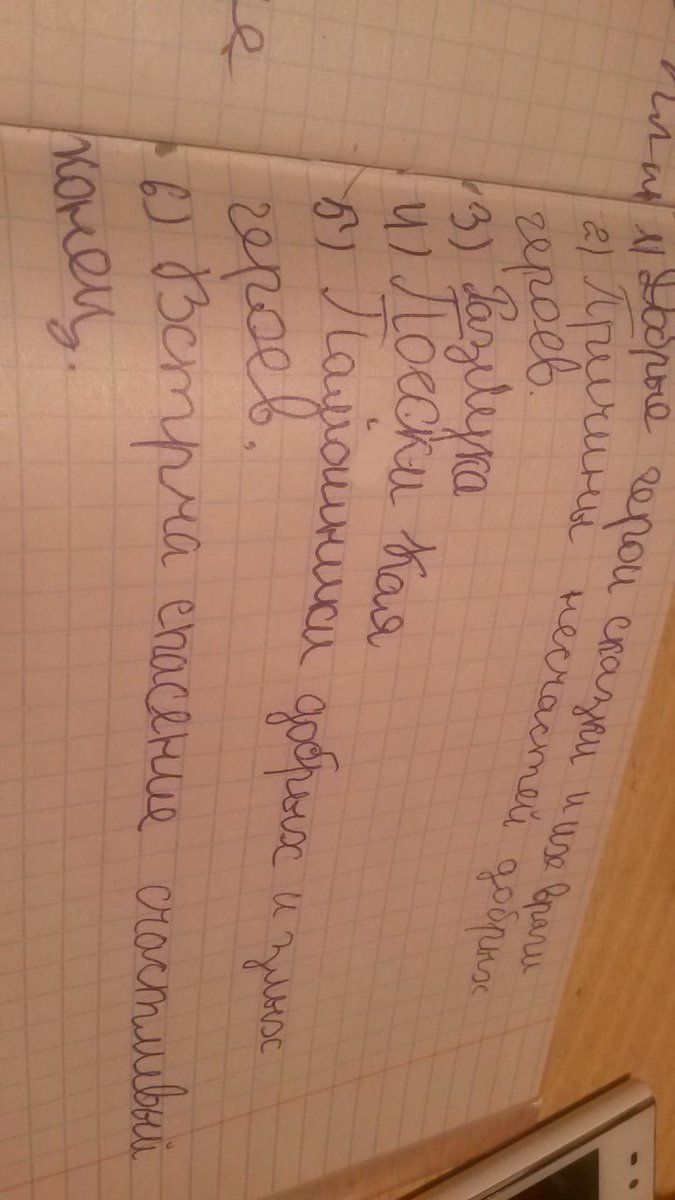 1) Добрые герои сказки и их враги
2) Причины несчастей добрых
героев.
3) Разлука
4) Поески Кая
5) Памошники добрых и злых
героев.
6) Встрча спасение счастливый
конец.